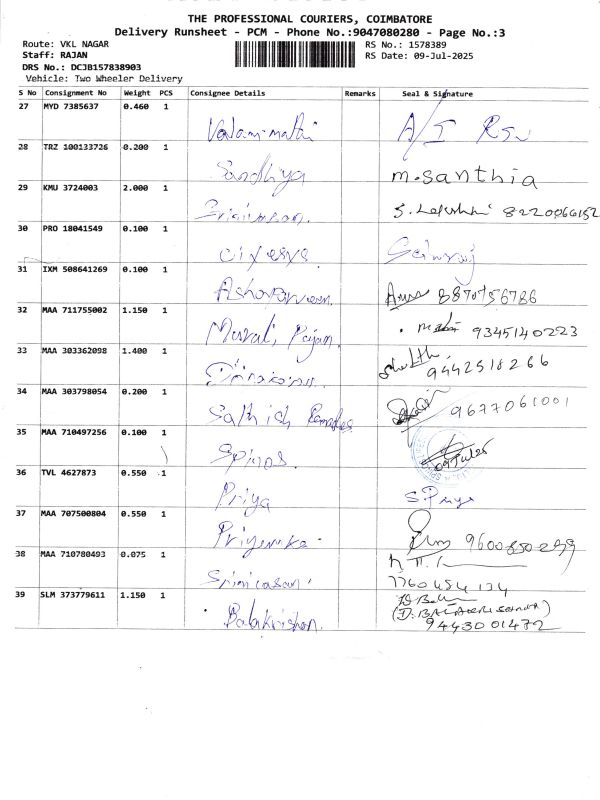 THE PROFESSIONAL COURIERS, COIMBATORE
Delivery Runsheet - PCM - Phone No.:9047080280 - Page No.:3
Route: VKL NAGAR
RS No.: 1578389
Staff: RAJAN
RS Date: 09-Jul-2025
DRS No.: DCJB157838903
Vehicle: Two Wheeler Delivery
S No Consignment No Weight PCS Consignee Details Remarks Seal & Signature
27 MYD 7385637 0.460 1
Valarmathi
28 TRZ 100133726 0.200 1
Sandhiya m.santhia
29 KMU 3724003 2.000 1
8220066152
30 PRO 18041549 0.100 1
31 IXM 508641269 0.100 1
8870756786
32 MAA 711755002 1.150 1
Murali, Rajan. 9345140223
33 MAA 303362098 1.400 1
9442518266
34 MAA 303798054 0.200 1
Sathish 9677061001
35 MAA 710497256 0.100 1
Spinos. 09 Jul 25
36 TVL 4627873 0.550 1
Priya S Priya
37 MAA 707500804 0.550 1
Priyanka
38 MAA 710780493 0.075 1
Srinivasan. 7760454134
39 SLM 373779611 1.150 1
Balakrishan.
9443001472